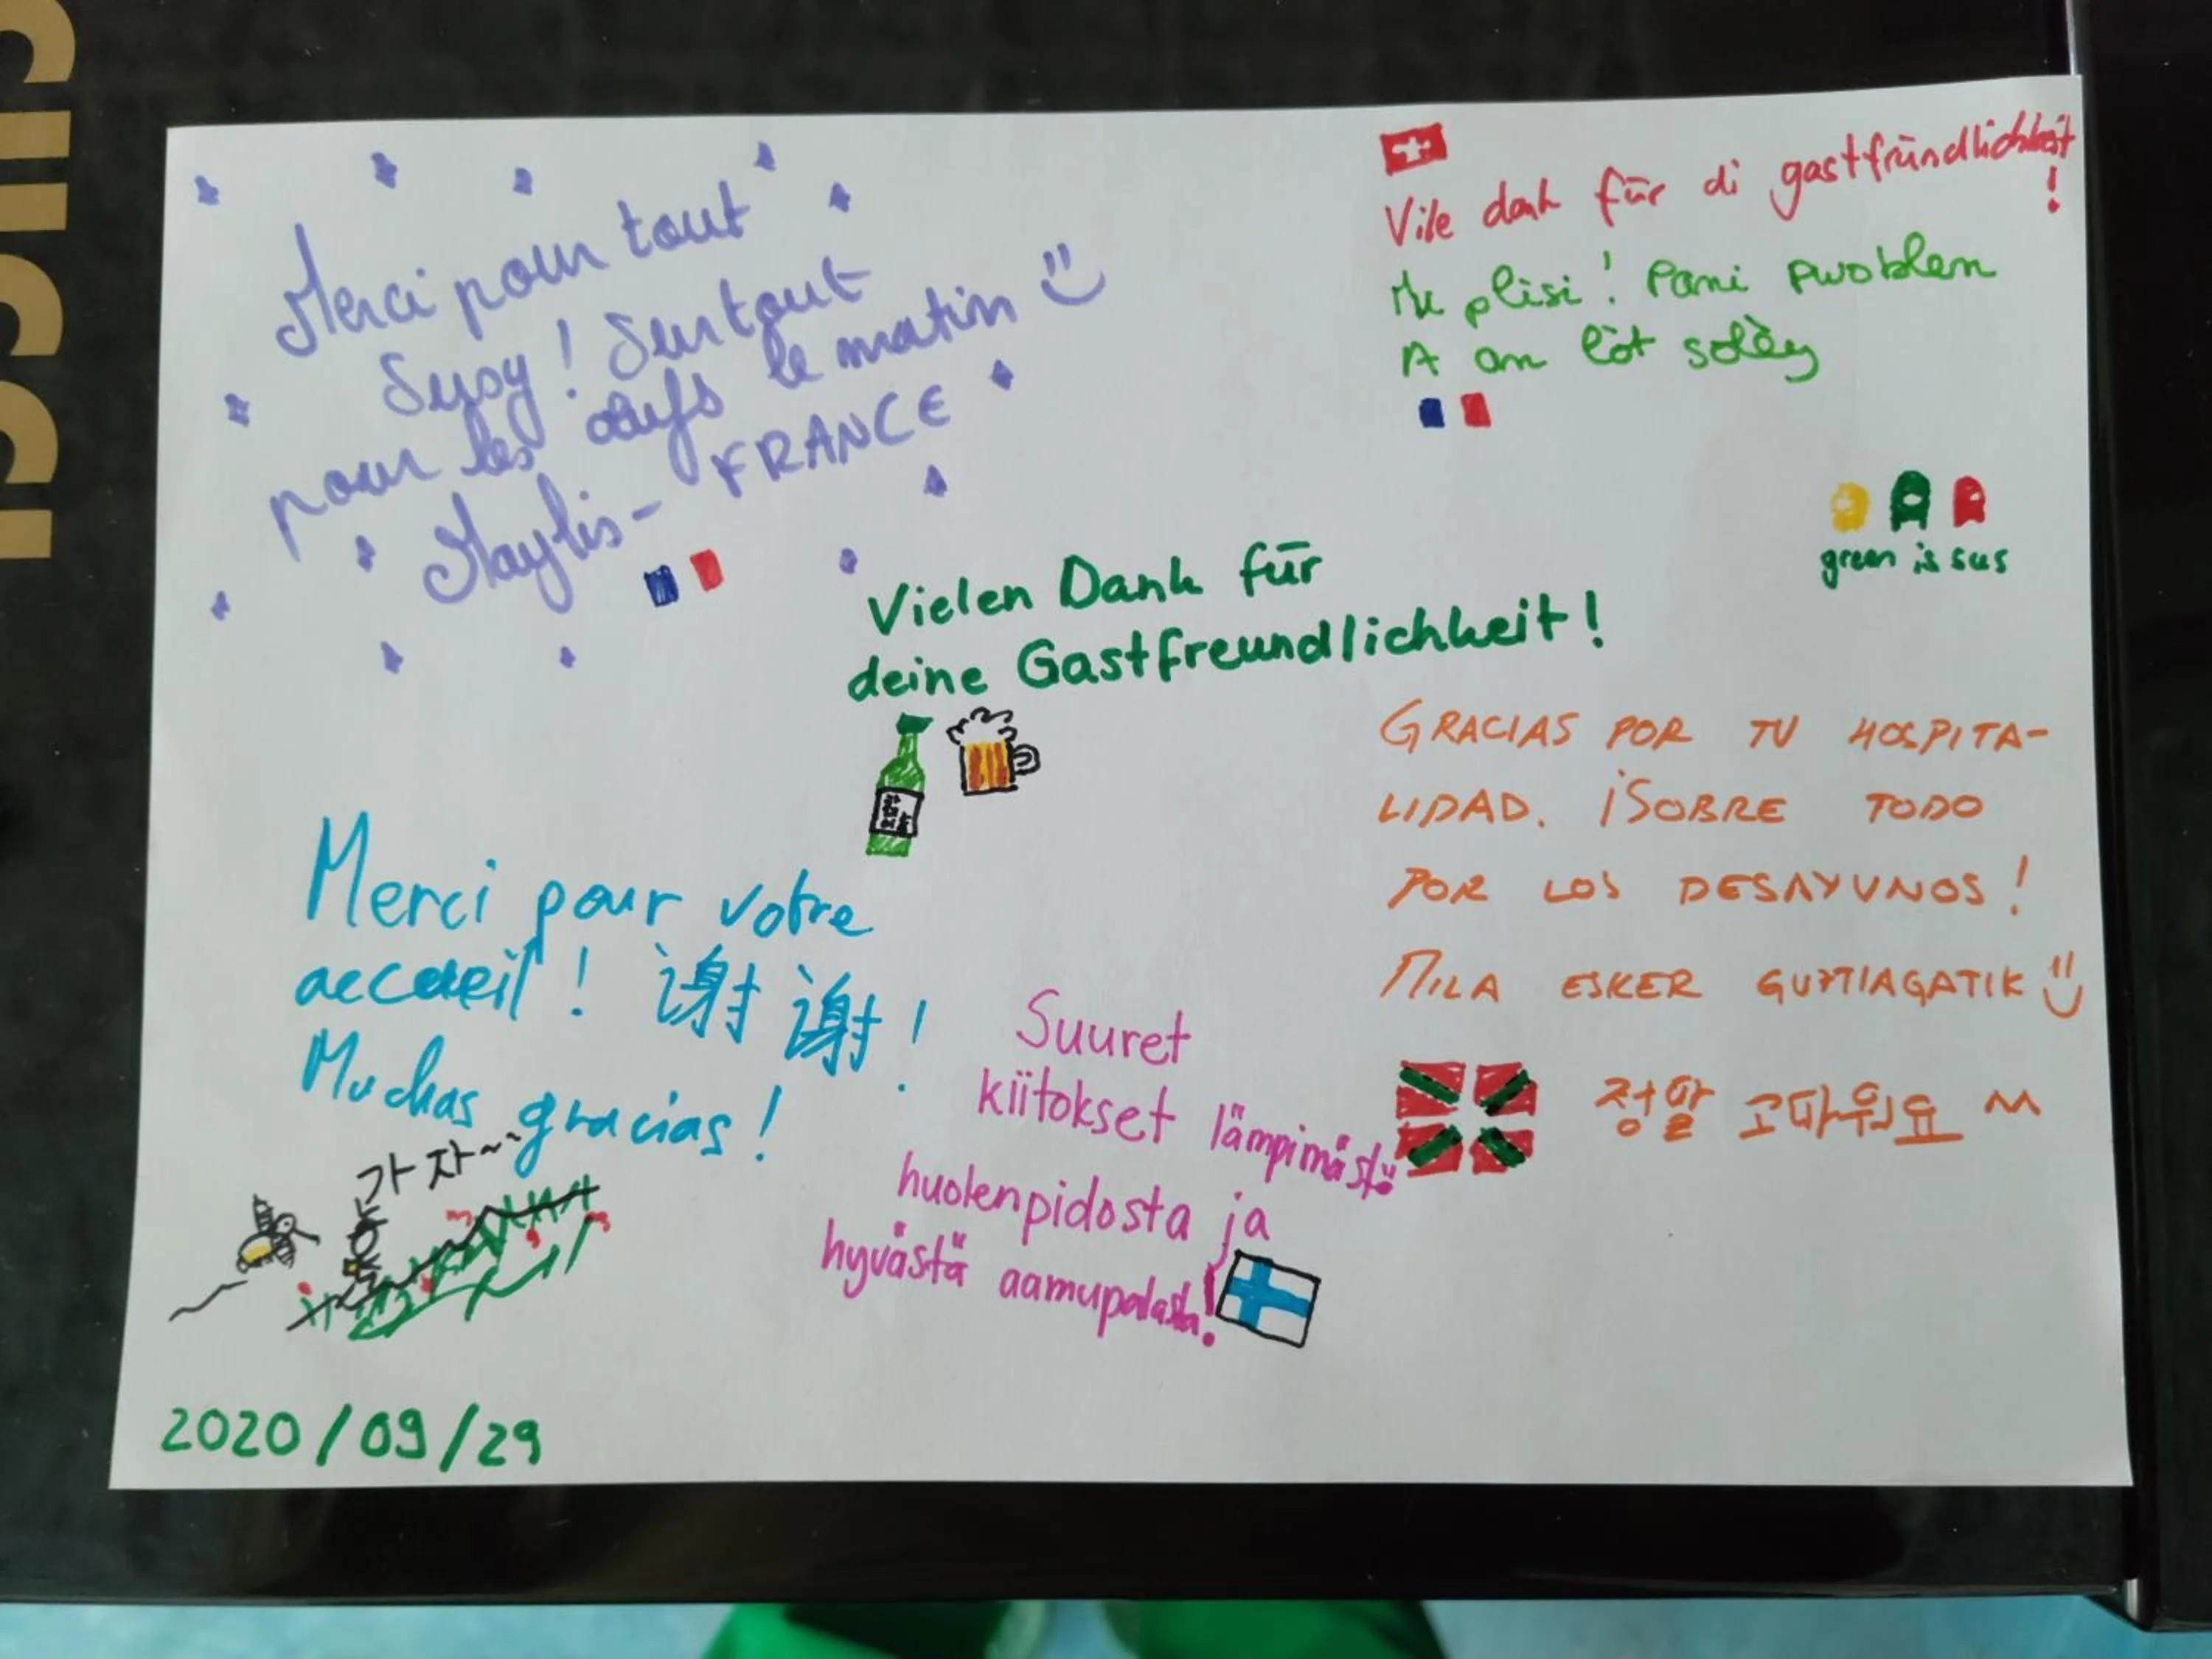 Merci pour tout
Susy ! Surtout
pour les œufs le matin
Maylis - FRANCE
Vile dank für di gastfründlichkeit !
plisi ! Pani pwoblem
A an lòt solèy
green is sus
Vielen Dank für
deine Gastfreundlichkeit !
GRACIAS POR TU HOSPITA-
LIDAD. ¡SOBRE TODO
POR LOS DESAYUNOS !
MILA ESKER GUZTIAGATIK
정말 고마워요 ^^
Merci pour votre
accueil ! 谢谢 !
Muchas gracias !
가자~~
Suuret
kiitokset lämpimästä
huolenpidosta ja
hyvästä aamupalasta!
2020/09/29